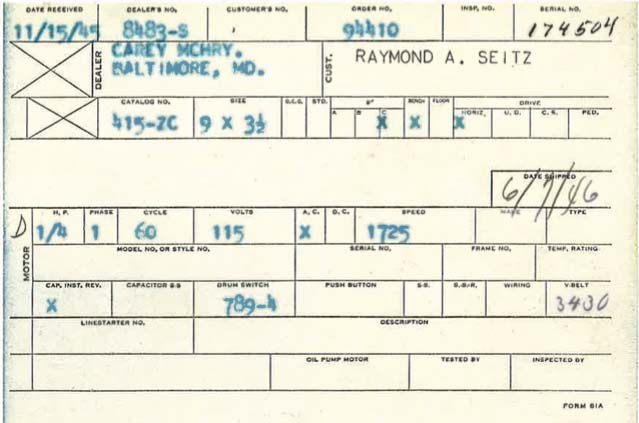 DATE RECEIVED DEALER'S NO. CUSTOMER'S NO. ORDER NO. INSP. NO. SERIAL NO.
11/15/45 8483-S 94410 174504
DEALER CAREY MCHRY. CUST. RAYMOND A. SEITZ
BALTIMORE, MD.
CATALOG NO. SIZE D.C.G. STD. BENCH FLOOR DRIVE
A B C HORIZ. U. D. C. S. PED.
415-ZC 9 X 3½ X X X
DATE SHIPPED
6/7/46
H. P. PHASE CYCLE VOLTS A. C. D. C. SPEED MAKE TYPE
D 1/4 1 60 115 X 1725
MOTOR
MODEL NO. OR STYLE NO. SERIAL NO. FRAME NO. TEMP. RATING
CAP. INST. REV. CAPACITOR S-S DRUM SWITCH PUSH BUTTON S-S. S.-B-R. WIRING V-BELT
X 789-4 3430
LINESTARTER NO. DESCRIPTION
OIL PUMP MOTOR TESTED BY INSPECTED BY
FORM 81A